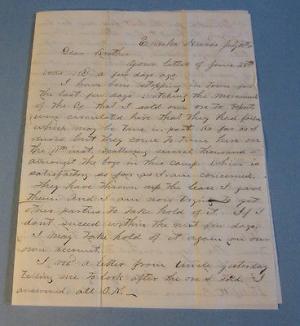 Eureka Nevada July 10th
Dear Brother
Yours letter of June 28th
was rec'd a few days ago
I have been stopping in town for
the last few days watching the movements
of the Co. that it sold our ore to. Report
being circulated here that they had failed
which may be true in part as far as I
know but they come to time here on
the 1st inst, paying several thousand $
amongst the boys in this camp which is
satisfactory as far as I am concerned.
they have thrown up the lease I gave
them and I am now trying to get
other parties to take hold of it. If I
dont succeed within the next few days
I may take hold of it again on our
own account.
I rec'd a letter from Uncle yesterday
telling me to look after the ore I sold. I
answered all O.K.